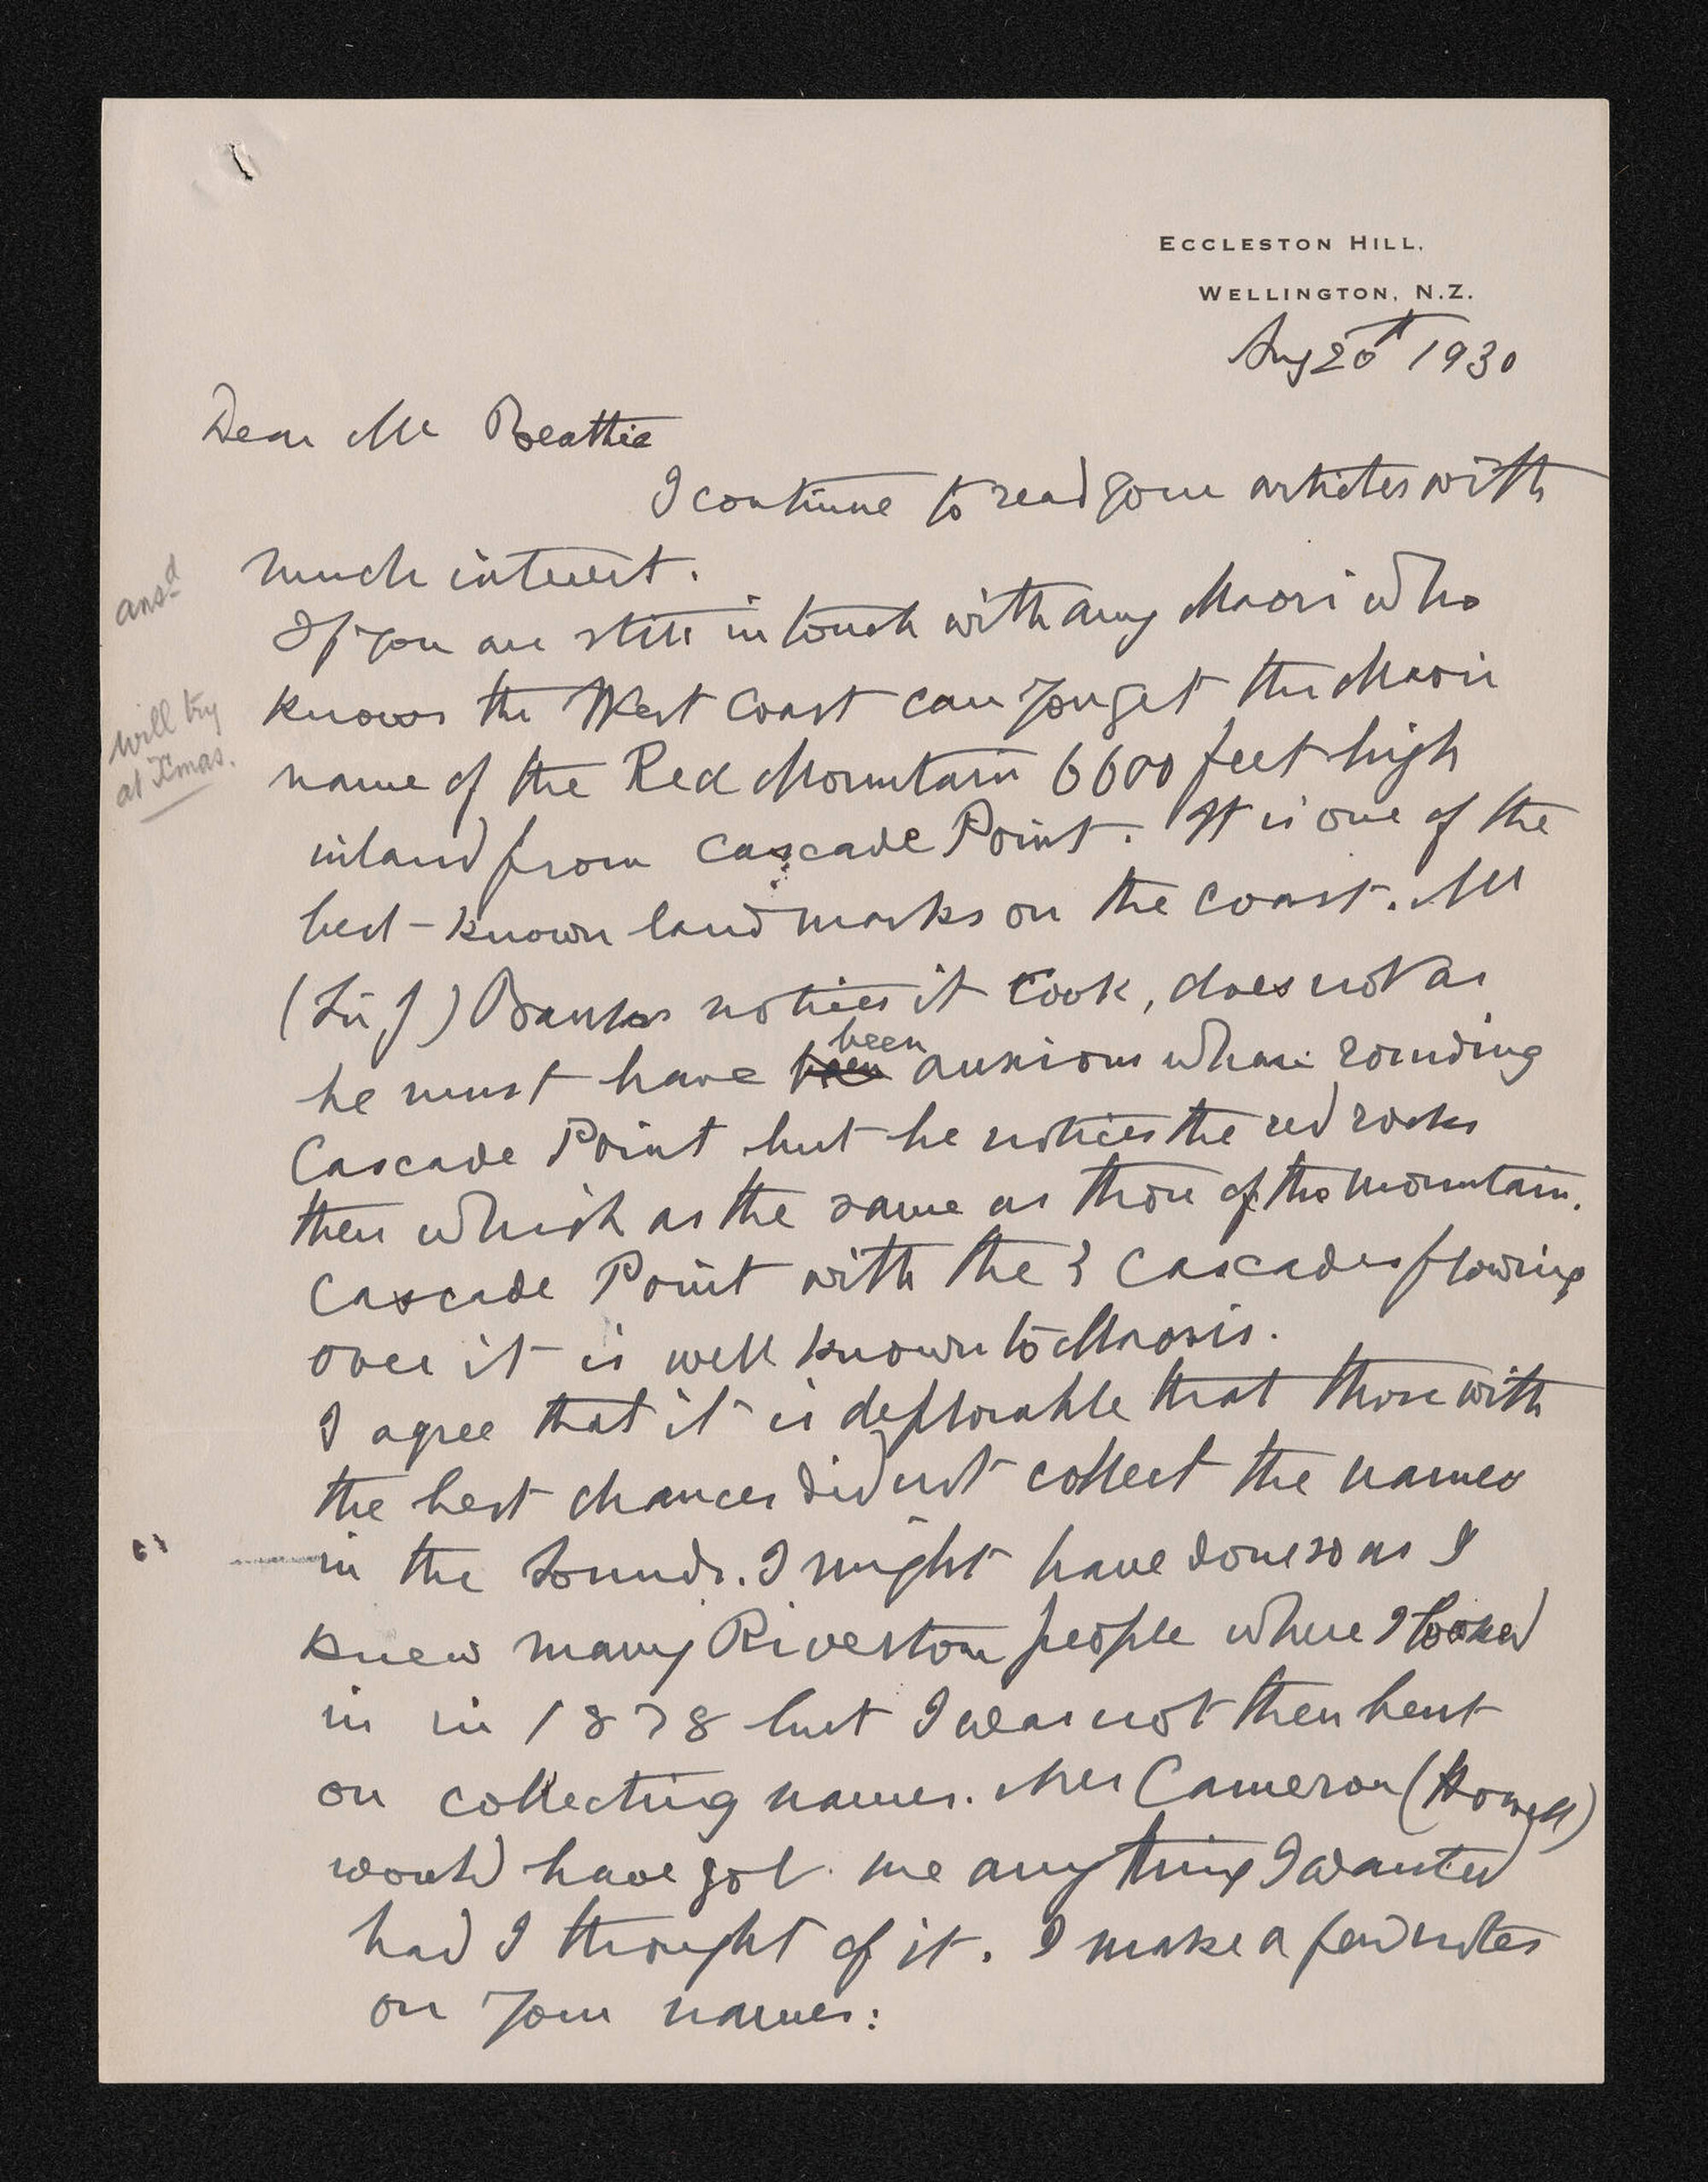 ECCLESTON HILL,
WELLINGTON, N.Z.
Aug 20th 1930
Dear Mr Beattie
I continue to read your articles with
much interest.
ansd
If you are still in touch with any Maori who
knows the West Coast can you get the Maori
will try
at Xmas.
name of the Red Mountain 6600 feet high
inland from Cascade Point. It is one of the
best-known landmarks on the coast. Mr
(Sir J) Banks notices it Cook, does not as
he must have been been anxious when rounding
Cascade Point but he notices the red rocks
then which as the same as those of the mountain.
Cascade Point with the 3 Cascades flowing
over it is well known to Maoris.
I agree that it is deplorable that those with
the best chances did not collect the names
in the Sounds. I might have done so as I
knew many Riverton people where I looked
in in 1878 but I was not then bent
on collecting names. Mrs Cameron (Howell)
would have got me anything I wanted
had I thought of it. I make a few notes
on your names: